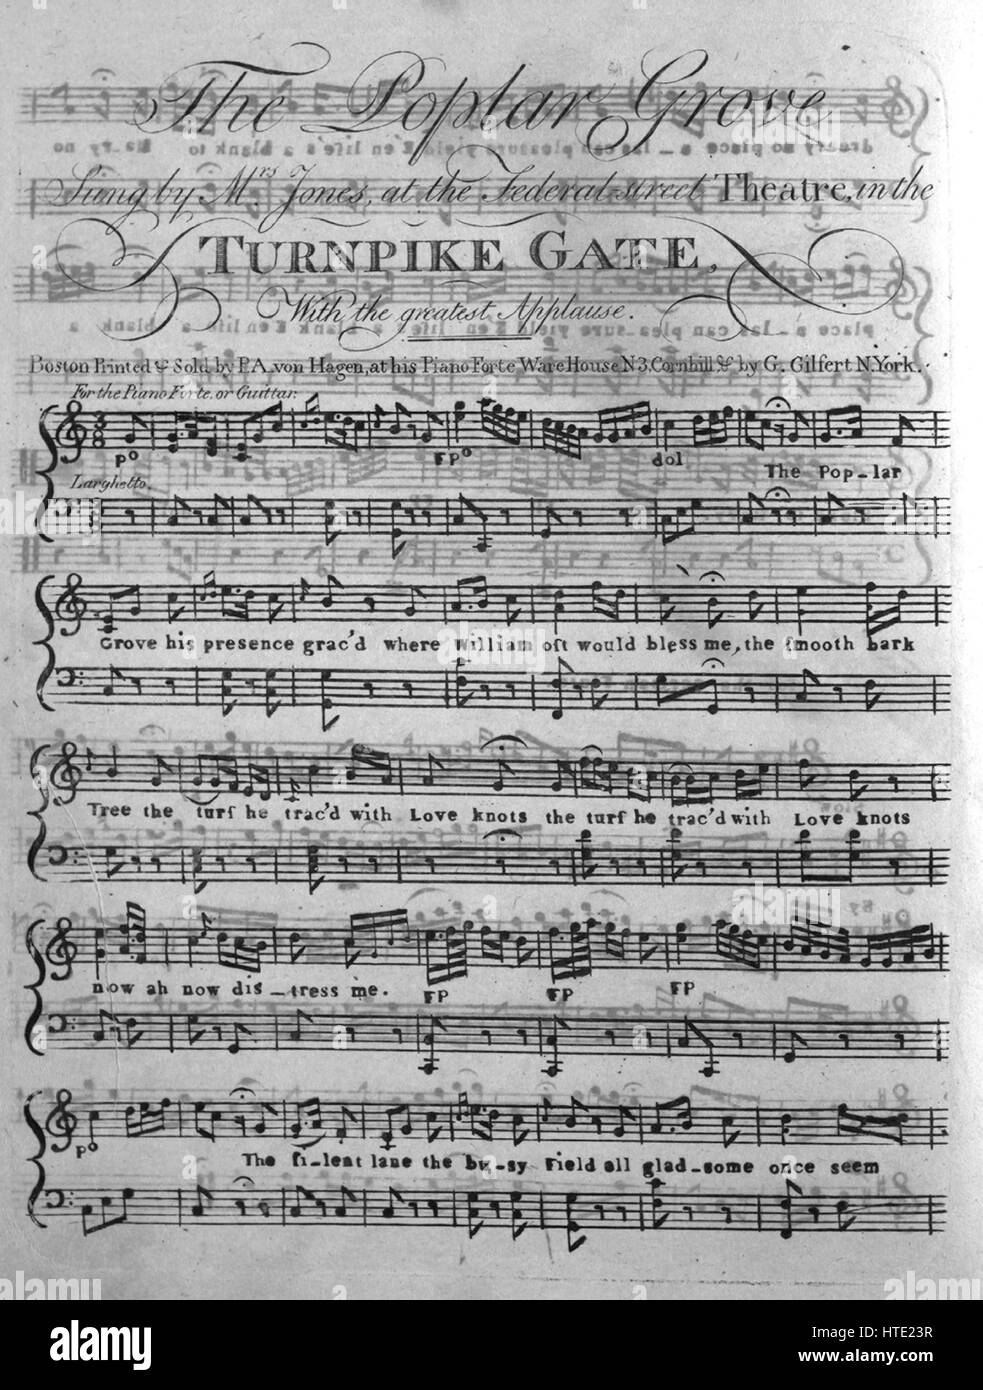 The Poplar Grove
Sung by Mrs. Jones, at the Federal-street Theatre, in the
TURNPIKE GATE,
With the greatest Applause.
Boston Printed & Sold by P.A. von Hagen, at his Piano Forte Ware House N3, Cornhill & by G. Gilfert N. York.
For the Piano Forte, or Guittar.
3 8
po FPo dol The Pop-lar
Larghetto.
Grove his presence grac'd where William oft would bless me, the smooth bark
Tree the turf he trac'd with Love knots the turf he trac'd with Love knots
now ah now dis-tress me. FP FP FP
po
The si-lent lane the bu-sy Field all glad-some once seem
a
alamy
alamy stock photo
HTE23R
www.alamy.com